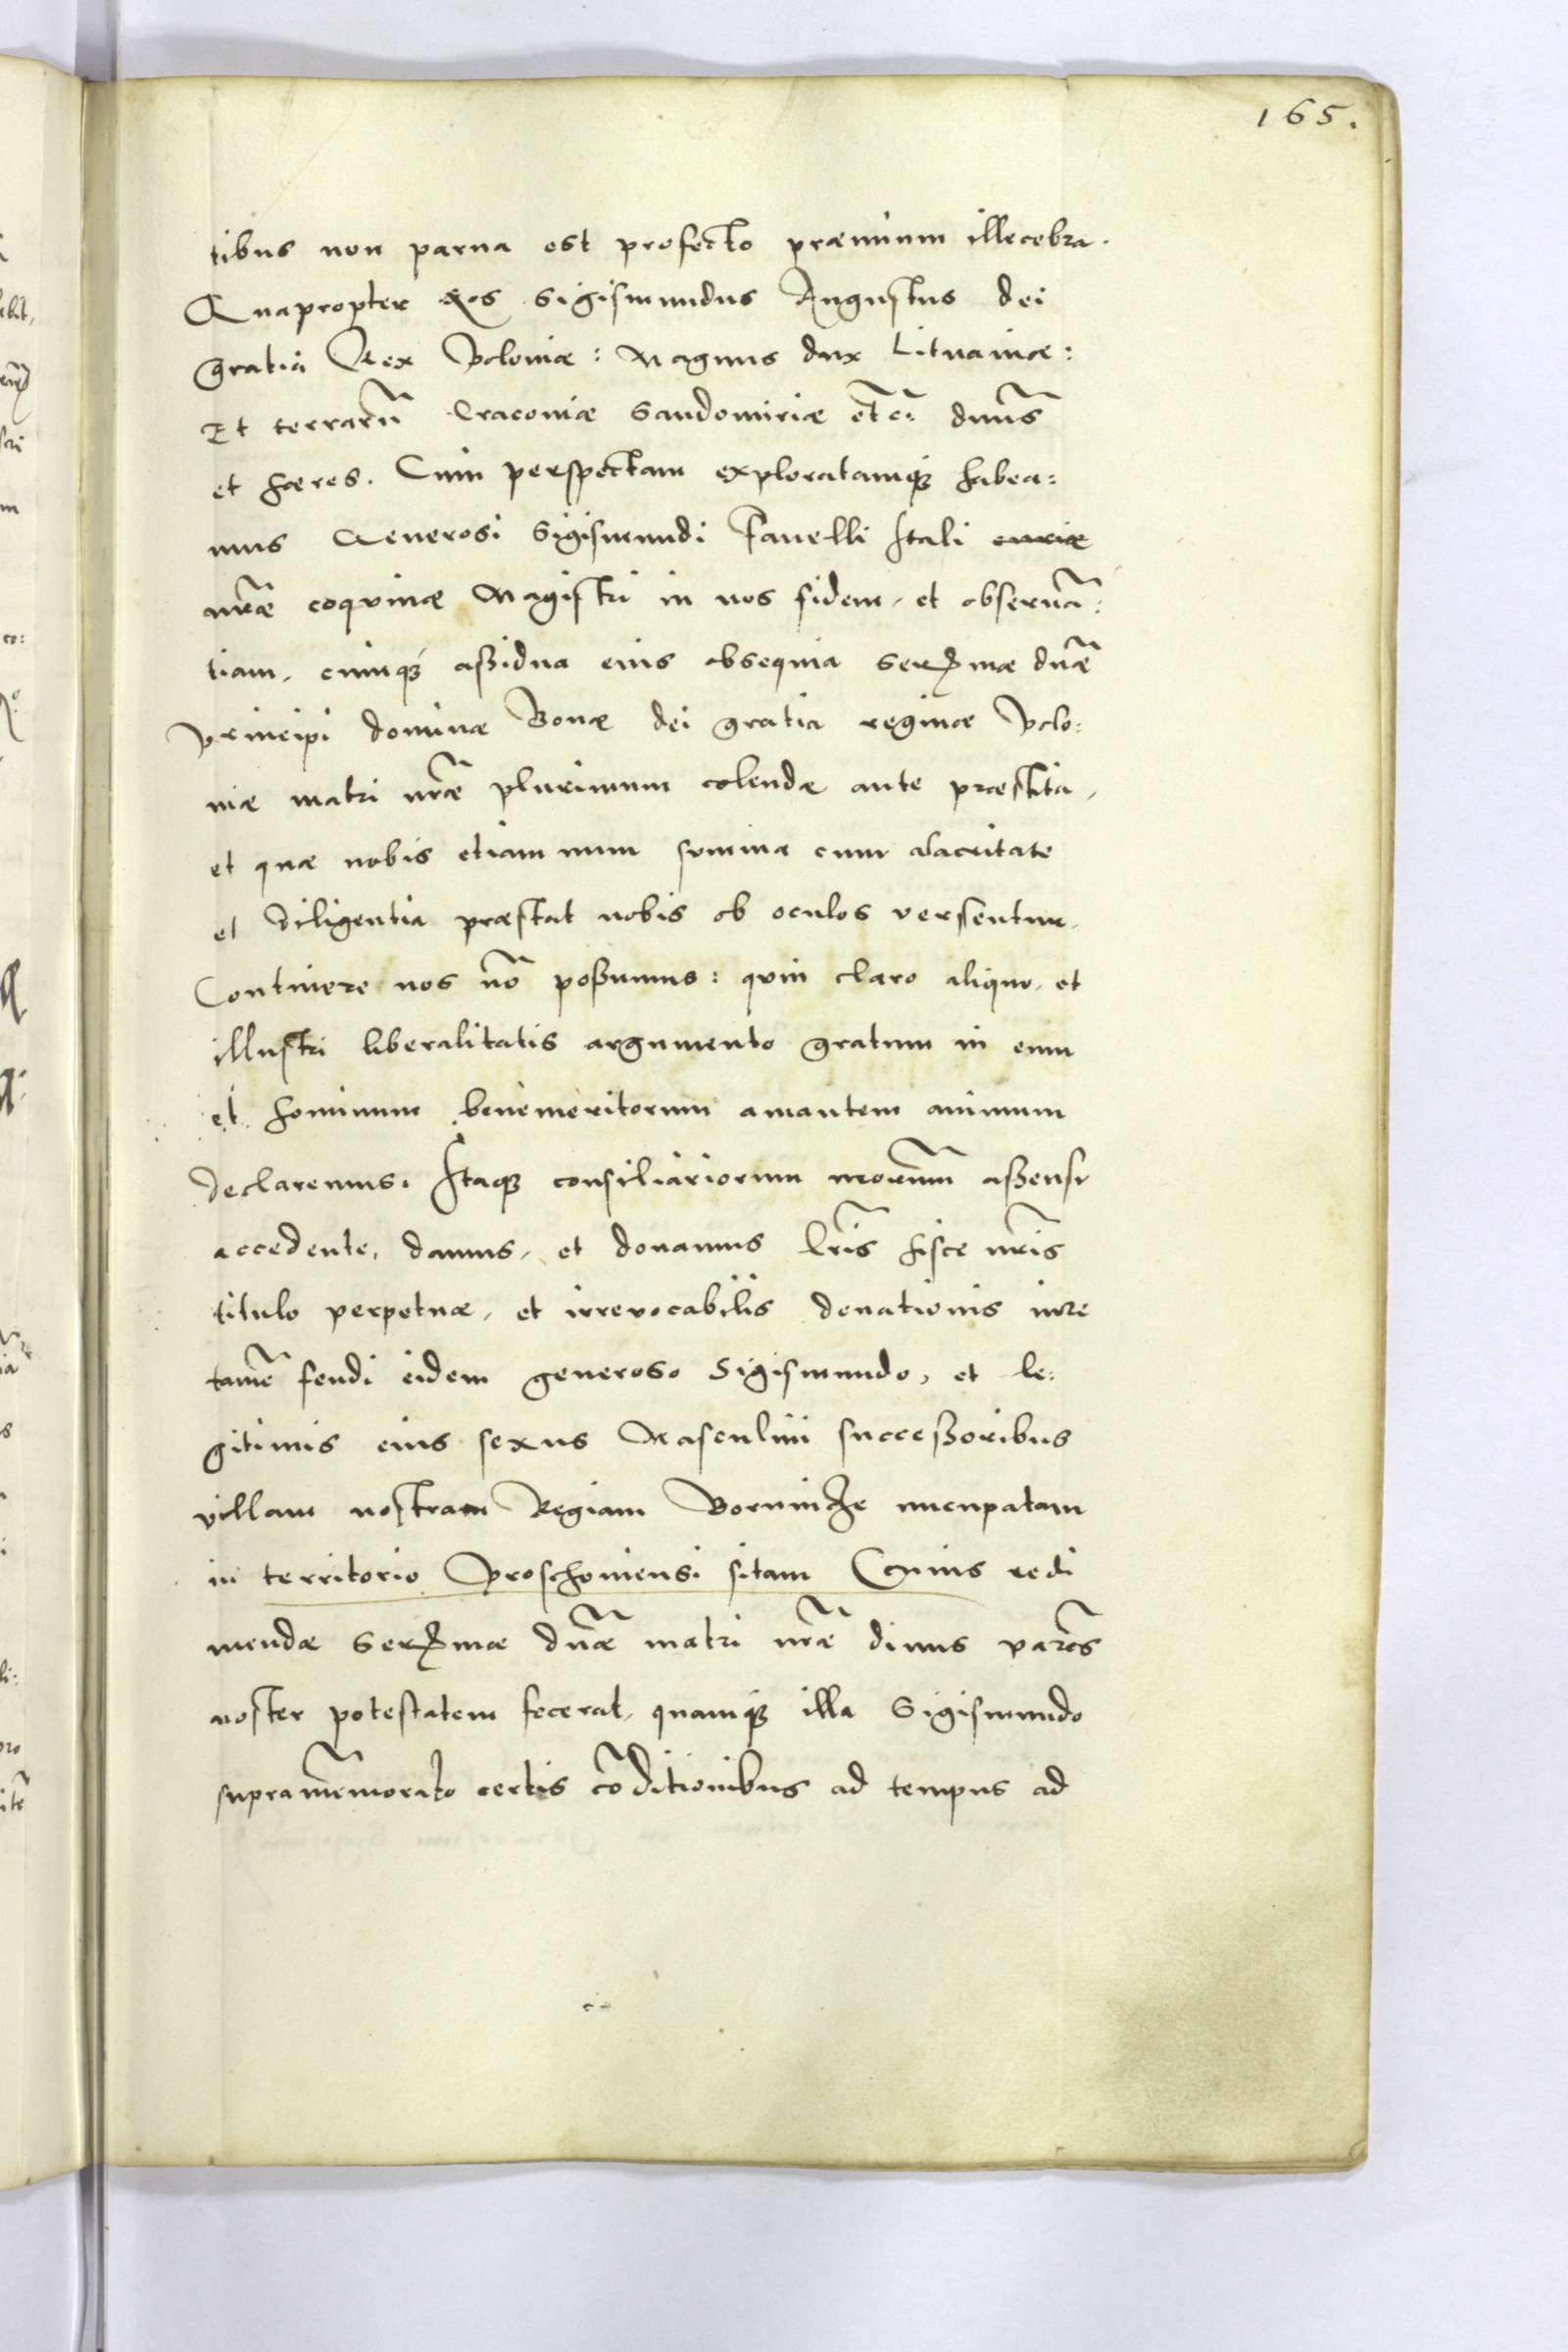 165.
tibus non parua est profecto præmium illecebra.
Quapropter Nos Sigismundus Augustus dei
gratia Rex Poloniæ: Magnus dux Lituaniæ:
Et terrarũ Cracouiæ Sandomiriæ etc̃: dnũs
et hæres. Cum perspectam exploratamq̃ habea:
mus Generosi Sigismundi Fanelli Itali curiæ
nr̃æ coquinæ Magistri in nos fidem, et obseruã:
tiam, cumq̃ aßidua eius obsequia Serͫmæ dnæ̃
Principi dominæ Bonæ dei gratia reginæ Polo:
niæ matri nræ̃ plurimum colendæ ante præstita,
et quæ nobis etiam num summa cum alacritate
et diligentia præstat nobis ob oculos versentur.
Continere nos nõ poßumus: quin claro aliquo, et
illustri liberalitatis argumento gratum in eum
et hominum benemeritorum amantem animum
declaremus. Itaq̃ consiliariorum nrorum̃ aßensu
accedente, damus, et donamus lrĩs hisce nrĩs
titulo perpetuæ, et irreuocabilis donationis iure
tamẽ feudi eidem generoso Sigismundo, et le:
gitimis eius sexus Masculini succeßoribus
villam nostram Regiam nuncupatam
in territorio Proschouiensi sitam Cuius redi
mendæ Serͫmæ dnæ̃ matri nræ̃ diuus parẽs
noster potestatem fecerat, quamq̃ illa Sigismundo
supramemorato certis cõditionibus ad tempus ad